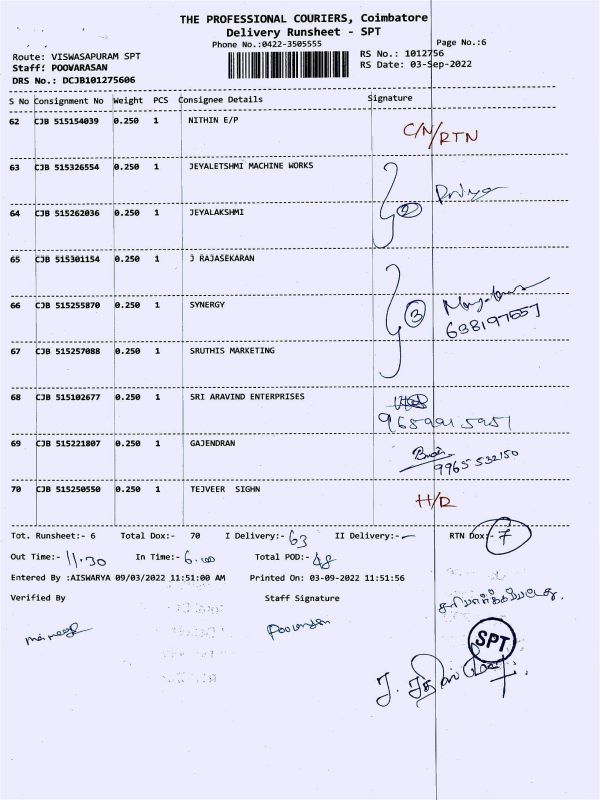 THE PROFESSIONAL COURIERS, Coimbatore
Delivery Runsheet - SPT
Phone No.:0422-3505555
Page No.:6
Route: VISWASAPURAM SPT
RS No.: 1012756
Staff: POOVARASAN
RS Date: 03-Sep-2022
DRS No.: DCJB101275606
S No Consignment No Weight PCS Consignee Details Signature
62 CJB 515154039 0.250 1 NITHIN E/P
C/N/RTN
63 CJB 515326554 0.250 1 JEYALETSHMI MACHINE WORKS
2 Priya
64 CJB 515262036 0.250 1 JEYALAKSHMI
65 CJB 515301154 0.250 1 J RAJASEKARAN
66 CJB 515255870 0.250 1 SYNERGY
3
67 CJB 515257088 0.250 1 SRUTHIS MARKETING
68 CJB 515102677 0.250 1 SRI ARAVIND ENTERPRISES
9659915951
69 CJB 515221807 0.250 1 GAJENDRAN
9965532150
70 CJB 515250550 0.250 1 TEJVEER SIGHN
H/D
Tot. Runsheet:- 6 Total Dox:- 70 I Delivery:- 63 II Delivery:- - RTN Dox:- 7
Out Time:- 11.30 In Time:- 6.00 Total POD:- 48
Entered By :AISWARYA 09/03/2022 11:51:00 AM Printed On: 03-09-2022 11:51:56
Verified By Staff Signature
சரிபார்க்கப்பட்டது.
Poovarasan
SPT